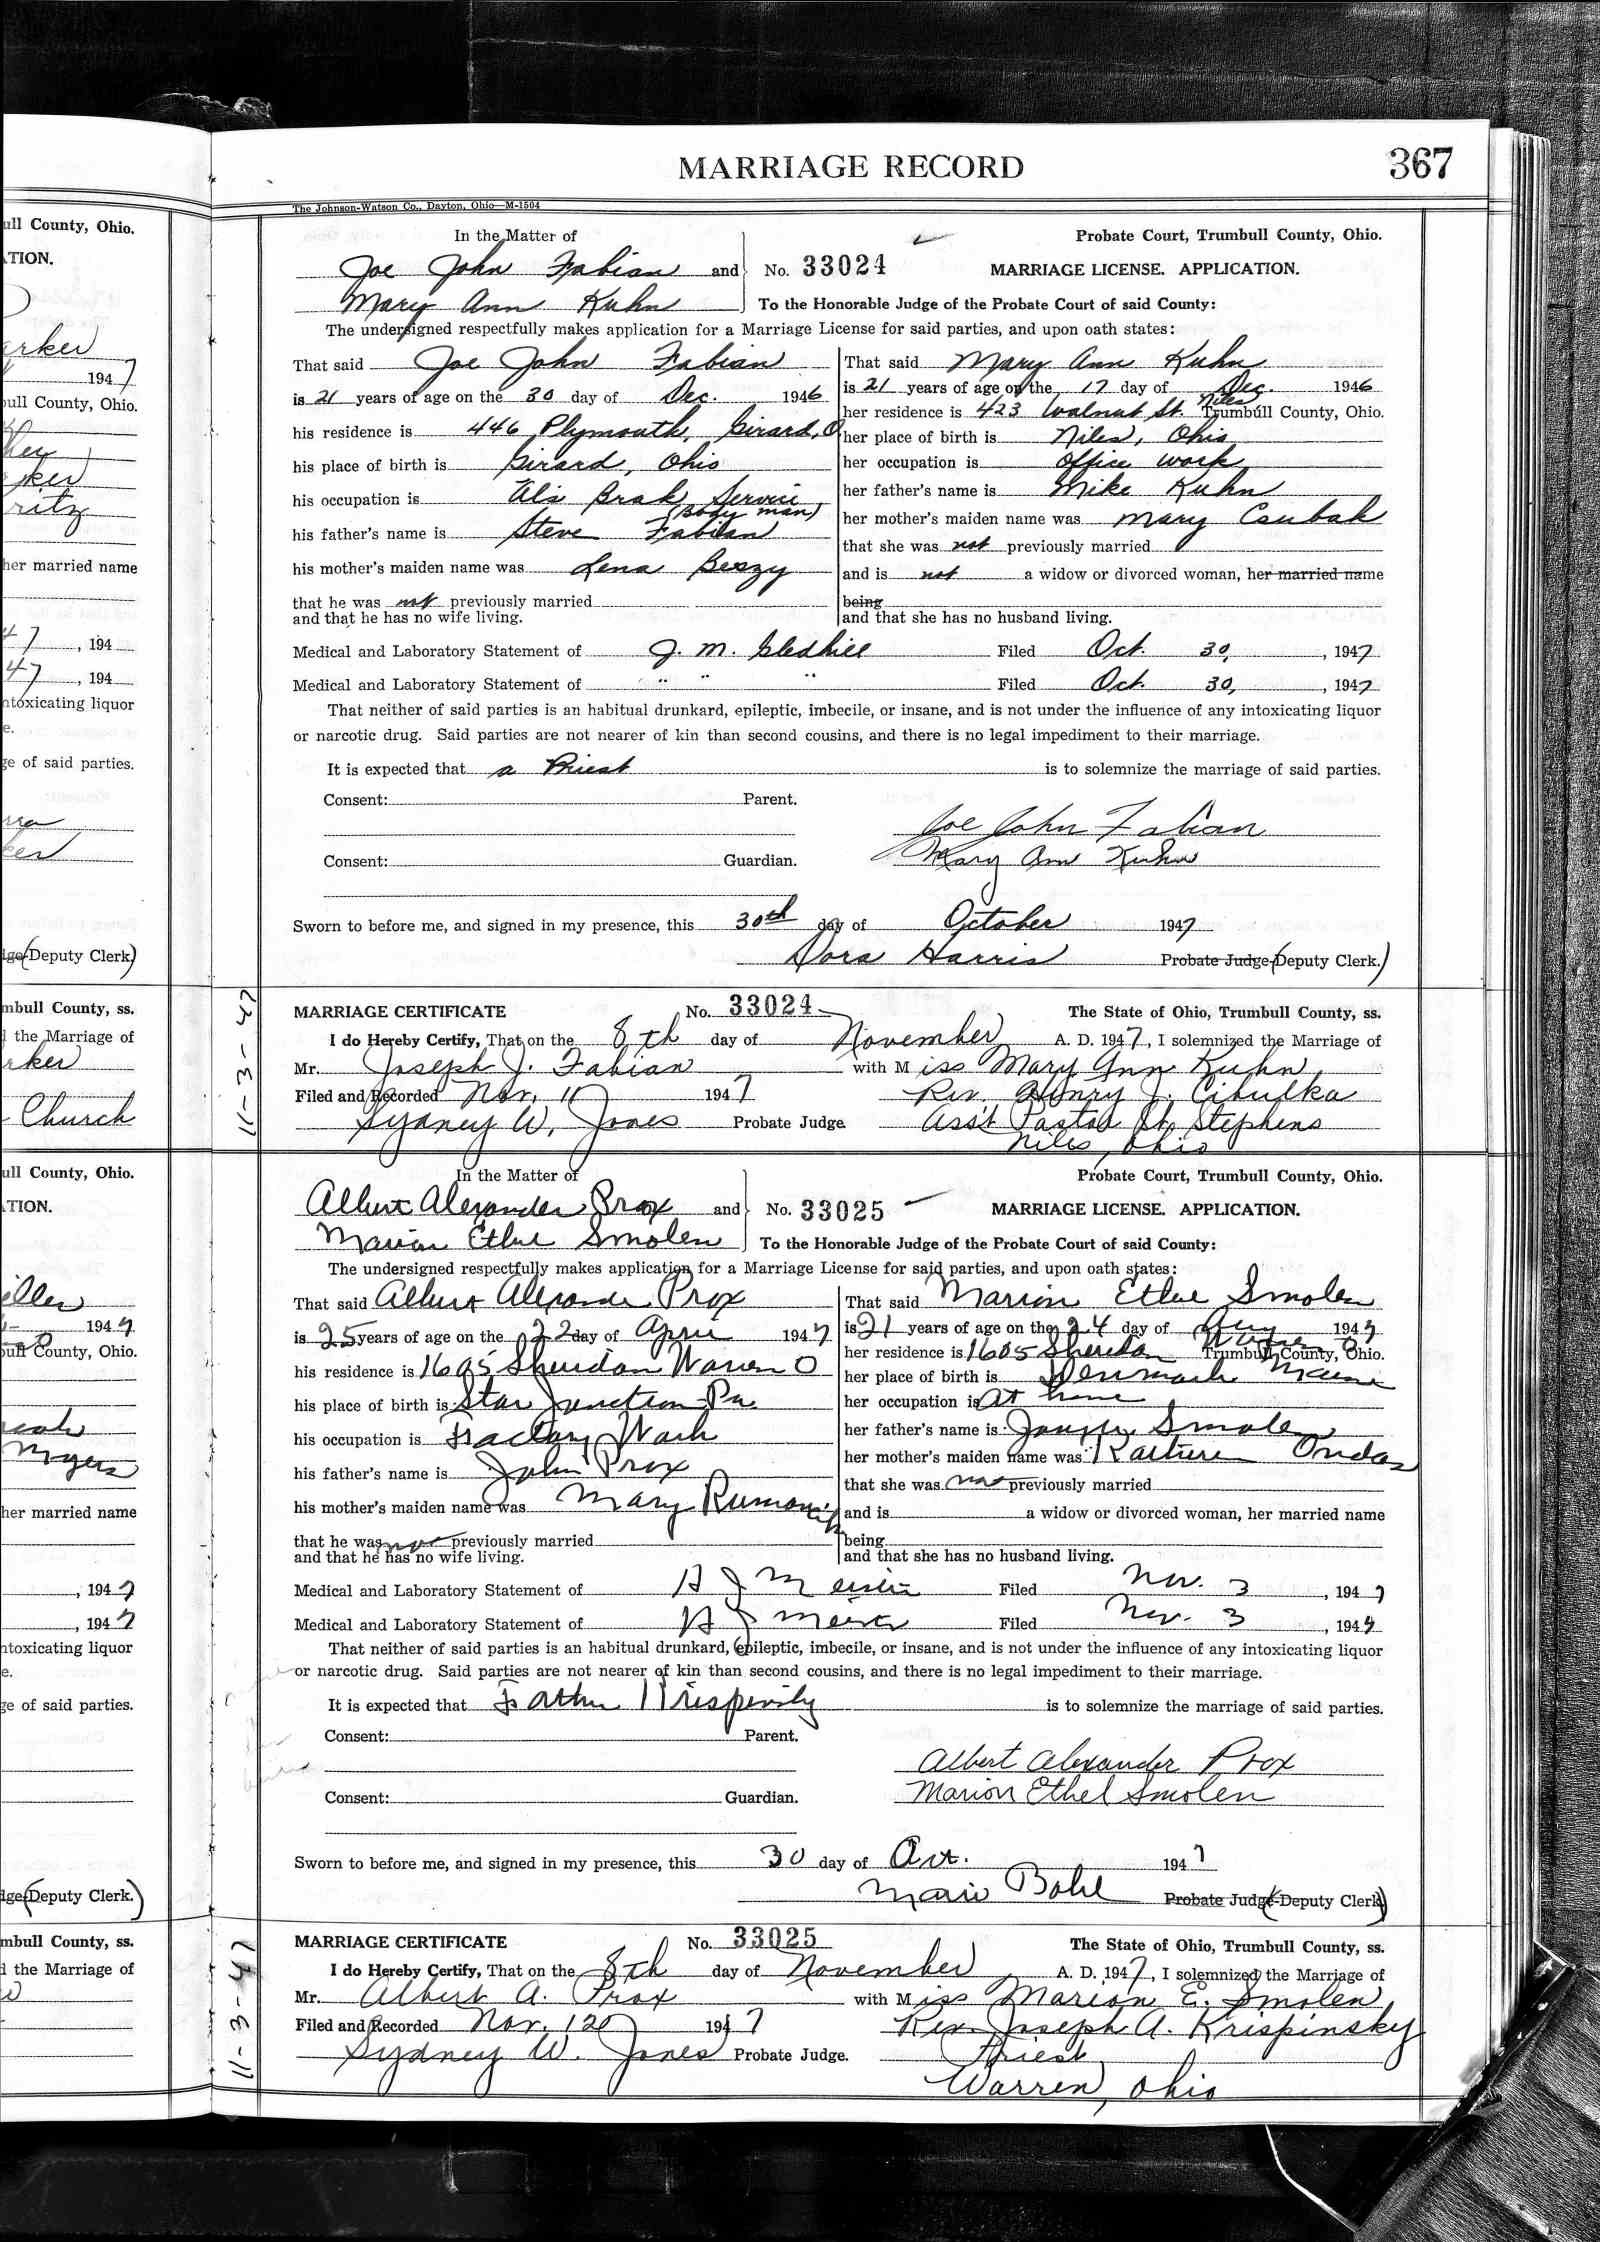 MARRIAGE RECORD
367
The Johnson-Watson Co., Dayton, Ohio—M-1504
In the Matter of
Joe John Fabian and
Mary Ann Kuhn
No. 33024
Probate Court, Trumbull County, Ohio.
MARRIAGE LICENSE. APPLICATION.
To the Honorable Judge of the Probate Court of said County:
The undersigned respectfully makes application for a Marriage License for said parties, and upon oath states:
That said Joe John Fabian
is 21 years of age on the 30 day of Dec. 1946
his residence is 446 Plymouth, Girard, O
his place of birth is Girard, Ohio
his occupation is Al's Brak Service
(Body man)
his father's name is Steve Fabian
his mother's maiden name was Lena Beszy
that he was not previously married
and that he has no wife living.
That said Mary Ann Kuhn
is 21 years of age on the 17 day of Dec. 1946
her residence is 423 Walnut St. Niles Trumbull County, Ohio.
her place of birth is Niles, Ohio
her occupation is Office work
her father's name is Mike Kuhn
her mother's maiden name was Mary Csubak
that she was not previously married
and is not a widow or divorced woman, her married name
being
and that she has no husband living.
Medical and Laboratory Statement of J. M. Gledhill Filed Oct. 30, 1947
Medical and Laboratory Statement of " " " Filed Oct. 30, 1947
That neither of said parties is an habitual drunkard, epileptic, imbecile, or insane, and is not under the influence of any intoxicating liquor
or narcotic drug. Said parties are not nearer of kin than second cousins, and there is no legal impediment to their marriage.
It is expected that a Priest is to solemnize the marriage of said parties.
Consent: Parent.
Joe John Fabian
Consent: Guardian.
Mary Ann Kuhn
Sworn to before me, and signed in my presence, this 30th day of October 1947
Dora Harris Probate Judge-(Deputy Clerk.)
11-3-47
MARRIAGE CERTIFICATE No. 33024 The State of Ohio, Trumbull County, ss.
I do Hereby Certify, That on the 8th day of November A. D. 1947, I solemnized the Marriage of
Mr. Joseph J. Fabian with Miss Mary Ann Kuhn
Filed and Recorded Nov. 11 1947 Rev. Henry J. Cibulka
Sydney W. Jones Probate Judge. Ass't Pastor St. Stephens
Niles, Ohio
In the Matter of
Albert Alexander Prox and
Marion Ethel Smolen
No. 33025
Probate Court, Trumbull County, Ohio.
MARRIAGE LICENSE. APPLICATION.
To the Honorable Judge of the Probate Court of said County:
The undersigned respectfully makes application for a Marriage License for said parties, and upon oath states:
That said Albert Alexander Prox
is 25 years of age on the 22 day of April 1947
his residence is 1605 Sheridan Warren O
his place of birth is Star Junction Pa.
his occupation is Factory Work
his father's name is John Prox
his mother's maiden name was Mary
that he was not previously married
and that he has no wife living.
That said Marion Ethel Smolen
is 21 years of age on the 24 day of Aug 1947
her residence is 1605 Sheridan Warren O Trumbull County, Ohio.
her place of birth is Denmark Maine
her occupation is At home
her father's name is Joseph Smolen
her mother's maiden name was Ondas
that she was not previously married
and is a widow or divorced woman, her married name
being
and that she has no husband living.
Medical and Laboratory Statement of H J Filed Nov. 3, 1947
Medical and Laboratory Statement of H J Filed Nov. 3, 1947
That neither of said parties is an habitual drunkard, epileptic, imbecile, or insane, and is not under the influence of any intoxicating liquor
or narcotic drug. Said parties are not nearer of kin than second cousins, and there is no legal impediment to their marriage.
It is expected that Father is to solemnize the marriage of said parties.
Consent: Parent.
Albert Alexander Prox
Consent: Guardian.
Marion Ethel Smolen
Sworn to before me, and signed in my presence, this 30 day of Oct. 1947
Marie Bohl Probate Judge-(Deputy Clerk)
11-3-47
MARRIAGE CERTIFICATE No. 33025 The State of Ohio, Trumbull County, ss.
I do Hereby Certify, That on the 8th day of November A. D. 1947, I solemnized the Marriage of
Mr. Albert A. Prox with Miss Marion E. Smolen
Filed and Recorded Nov. 12 1947 Rev. Joseph A. Krispinsky
Sydney W. Jones Probate Judge. Priest
Warren, Ohio